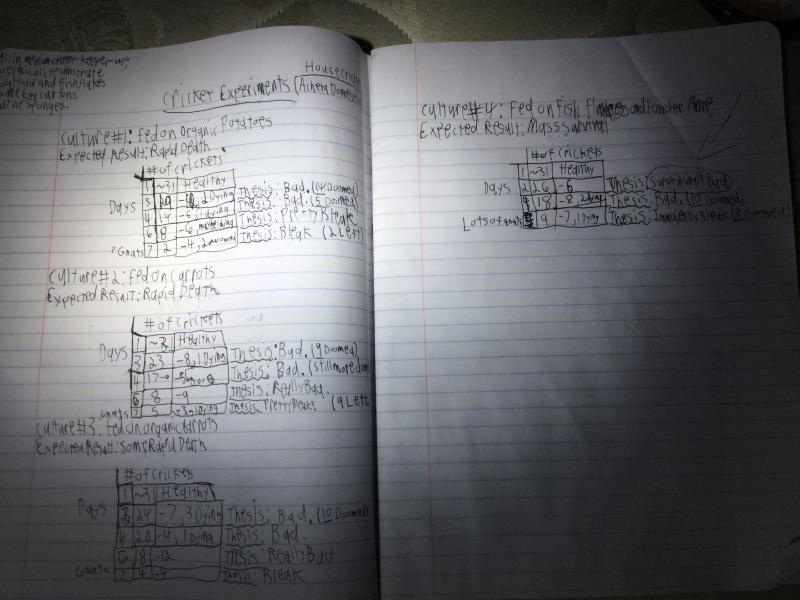 and fishflakes
egg cartons
sponges.
Cricket Experiments
House Cricke
(Acheta Domestic
Culture#1: Fed on Organic Potatoes
Expected Result: Rapid Death
# of crickets
Days
1 ~31 Healthy
3 2 Dying Thesis: Bad. (14 Doomed)
4 14 -5, 1 Dying Thesis: Bad. (5 Doomed)
Thesis: Pretty Bleak
6 8 -6 Thesis: Bleak (2 Left)
Gnats 7 2 -4, 2
Culture#2: Fed on Carrots
Expected Result: Rapid Death
# of crickets
Days
1 ~3 Healthy
3 23 -8, 1 Dying Thesis: Bad. (9 Doomed)
4 17 Thesis: Bad. (still more doo
6 8 -9 Thesis: Really Bad.
Gnats 7 5 -3, Dying Thesis: Pretty Bleak. (4 Left
Culture#3: Fed on organic carrots
Expected Result: Some Rapid Death
# of crickets
Days
1 ~31 Healthy
3 24 -7, 3 Dying Thesis: Bad. (10 Doomed)
4 20 -4, 1 Dying Thesis: Bad.
6 8 -12 Thesis: Really Bad
Gnats 7 4 -4 Thesis: Bleak
Culture #4: Fed on Fish and Powder
Expected Result: Mass Survival
# of crickets
Days
1 ~31 Healthy
2 26 -6 Thesis: Bad
4 18 -8, 2 Dying Thesis: Bad. (10 Doomed)
Lots of gnats 9 -7, 1 Dying Thesis: Imminently Bleak (8 Doomed)